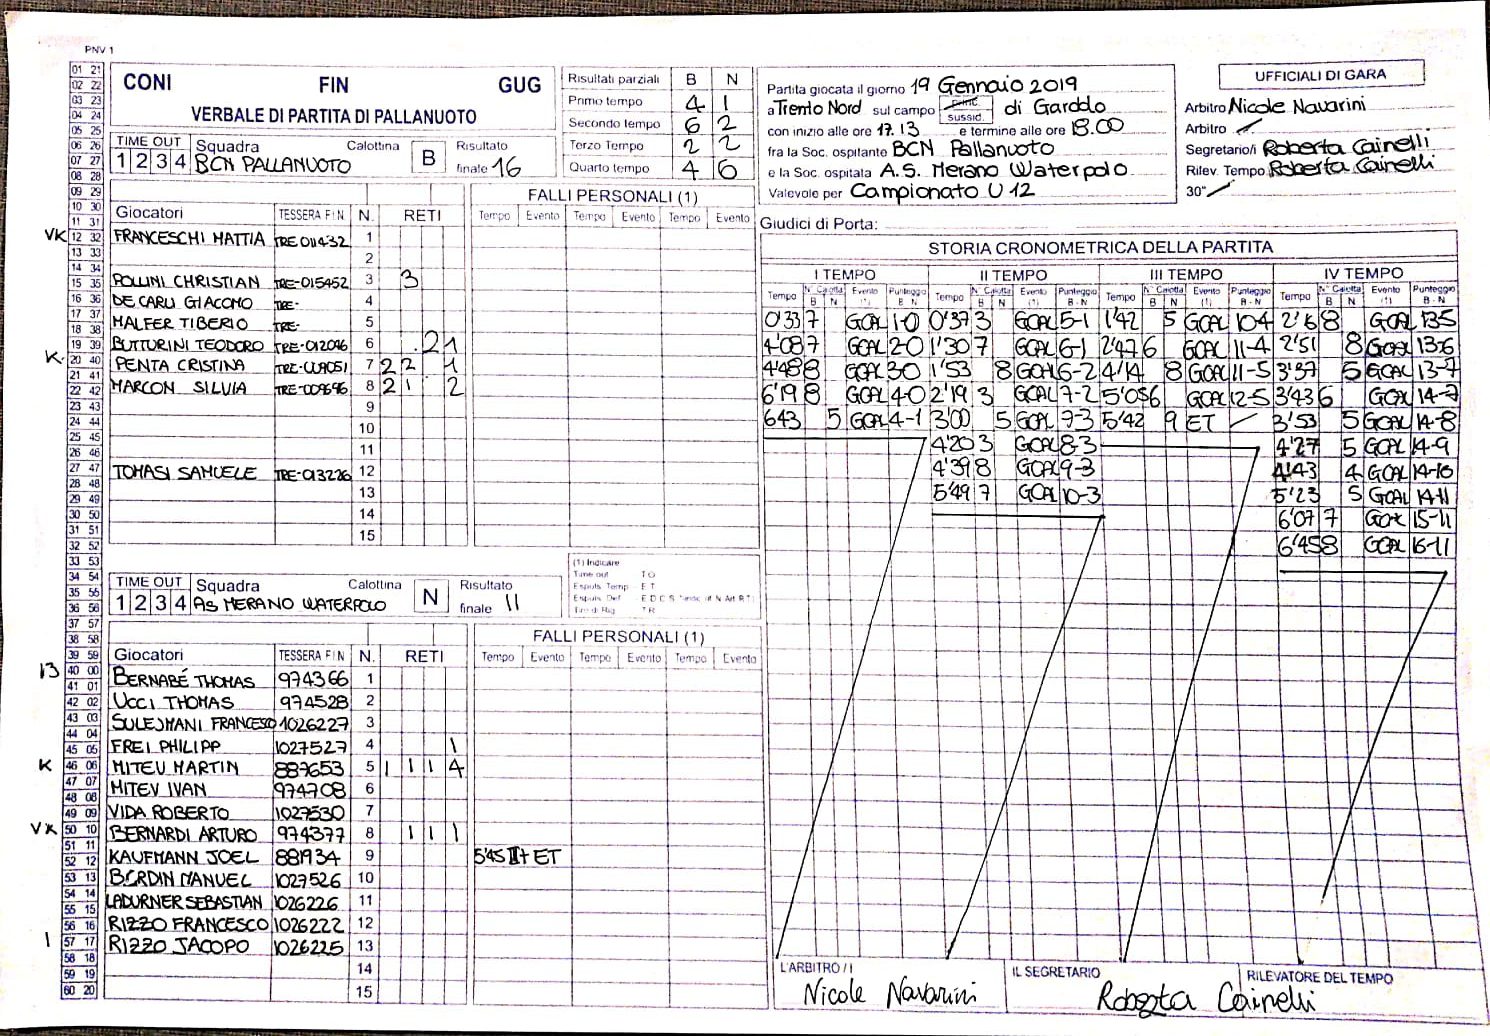 PNV 1
CONI FIN GUG
VERBALE DI PARTITA DI PALLANUOTO
TIME OUT Squadra Calottina B Risultato
1 2 3 4 BCN PALLANUOTO finale 16
Risultati parziali B N
Primo tempo 4 1
Secondo tempo 6 2
Terzo Tempo 2 2
Quarto tempo 4 6
Partita giocata il giorno 19 Gennaio 2019
a Trento Nord sul campo princ. sussid. di Gardolo
con inizio alle ore 17.13 e termine alle ore 18.00
fra la Soc. ospitante BCN Pallanuoto
e la Soc. ospitata A.S. Merano Waterpolo
Valevole per Campionato U 12
UFFICIALI DI GARA
Arbitro Nicole Navarini
Arbitro
Segretario/i Roberta Cainelli
Rilev. Tempo Roberta Cainelli
30"
Giudici di Porta:
FALLI PERSONALI (1)
Giocatori TESSERA FIN N. RETI Tempo Evento Tempo Evento Tempo Evento
VK FRANCESCHI MATTIA TRE 011432 1
2
POLLINI CHRISTIAN TRE-015452 3 3
DE CARLI GIACOMO TRE- 4
MALFER TIBERIO TRE- 5
BUTTURINI TEODORO TRE-012096 6 2 1
K PENTA CRISTINA 7 2 2 1
MARCON SILVIA 8 2 1 2
9
10
11
TOMASI SAMUELE TRE-013226 12
13
14
15
(1) Indicare
Time out T O
Espuls. Temp. E T
Espuls. Def.
Tiro di Rig. T R
TIME OUT Squadra Calottina N Risultato
1 2 3 4 AS MERANO WATERPOLO finale 11
FALLI PERSONALI (1)
Giocatori TESSERA FIN N. RETI Tempo Evento Tempo Evento Tempo Evento
13 BERNABÉ THOMAS 974366 1
UCCI THOMAS 974528 2
SULEJMANI FRANCESCO 1026227 3
FREI PHILIPP 1027527 4 1
K MITEV MARTIN 887653 5 1 1 1 4
MITEV IVAN 974708 6
VIDA ROBERTO 1027530 7
VK BERNARDI ARTURO 974377 8 1 1 1
KAUFMANN JOEL 881934 9 5'45 III t ET
BORDIN MANUEL 1027526 10
LADURNER SEBASTIAN 1026226 11
RIZZO FRANCESCO 1026222 12
1 RIZZO JACOPO 1026225 13
14
15
STORIA CRONOMETRICA DELLA PARTITA
I TEMPO II TEMPO III TEMPO IV TEMPO
Tempo N° Calotta B N Evento (1) Punteggio B - N Tempo N° Calotta B N Evento (1) Punteggio B - N Tempo N° Calotta B N Evento (1) Punteggio B - N Tempo N° Calotta B N Evento (1) Punteggio B - N
0'33 7 GOAL 1-0 0'37 3 GOAL 5-1 1'42 5 GOAL 10-4 2'16 8 GOAL 13-5
4'08 7 GOAL 2-0 1'30 7 GOAL 6-1 2'47 6 GOAL 11-4 2'51 8 GOAL 13-6
4'48 8 GOAL 3-0 1'53 8 GOAL 6-2 4'14 8 GOAL 11-5 3'37 5 GOAL 13-7
6'19 8 GOAL 4-0 2'19 3 GOAL 7-2 5'05 6 GOAL 12-5 3'43 6 GOAL 14-7
6'43 5 GOAL 4-1 3'00 5 GOAL 7-3 5'42 9 ET 3'53 5 GOAL 14-8
4'20 3 GOAL 8-3 4'27 5 GOAL 14-9
4'39 8 GOAL 9-3 4'43 4 GOAL 14-10
5'49 7 GOAL 10-3 5'23 5 GOAL 14-11
6'07 7 GOAL 15-11
6'45 8 GOAL 16-11
L'ARBITRO / I Nicole Navarini
IL SEGRETARIO RILEVATORE DEL TEMPO
Roberta Cainelli
01 21
02 22
03 23
04 24
05 25
06 26
07 27
08 28
09 29
10 30
11 31
12 32
13 33
14 34
15 35
16 36
17 37
18 38
19 39
20 40
21 41
22 42
23 43
24 44
25 45
26 46
27 47
28 48
29 49
30 50
31 51
32 52
33 53
34 54
35 55
36 56
37 57
38 58
39 59
40 00
41 01
42 02
43 03
44 04
45 05
46 06
47 07
48 08
49 09
50 10
51 11
52 12
53 13
54 14
55 15
56 16
57 17
58 18
59 19
60 20